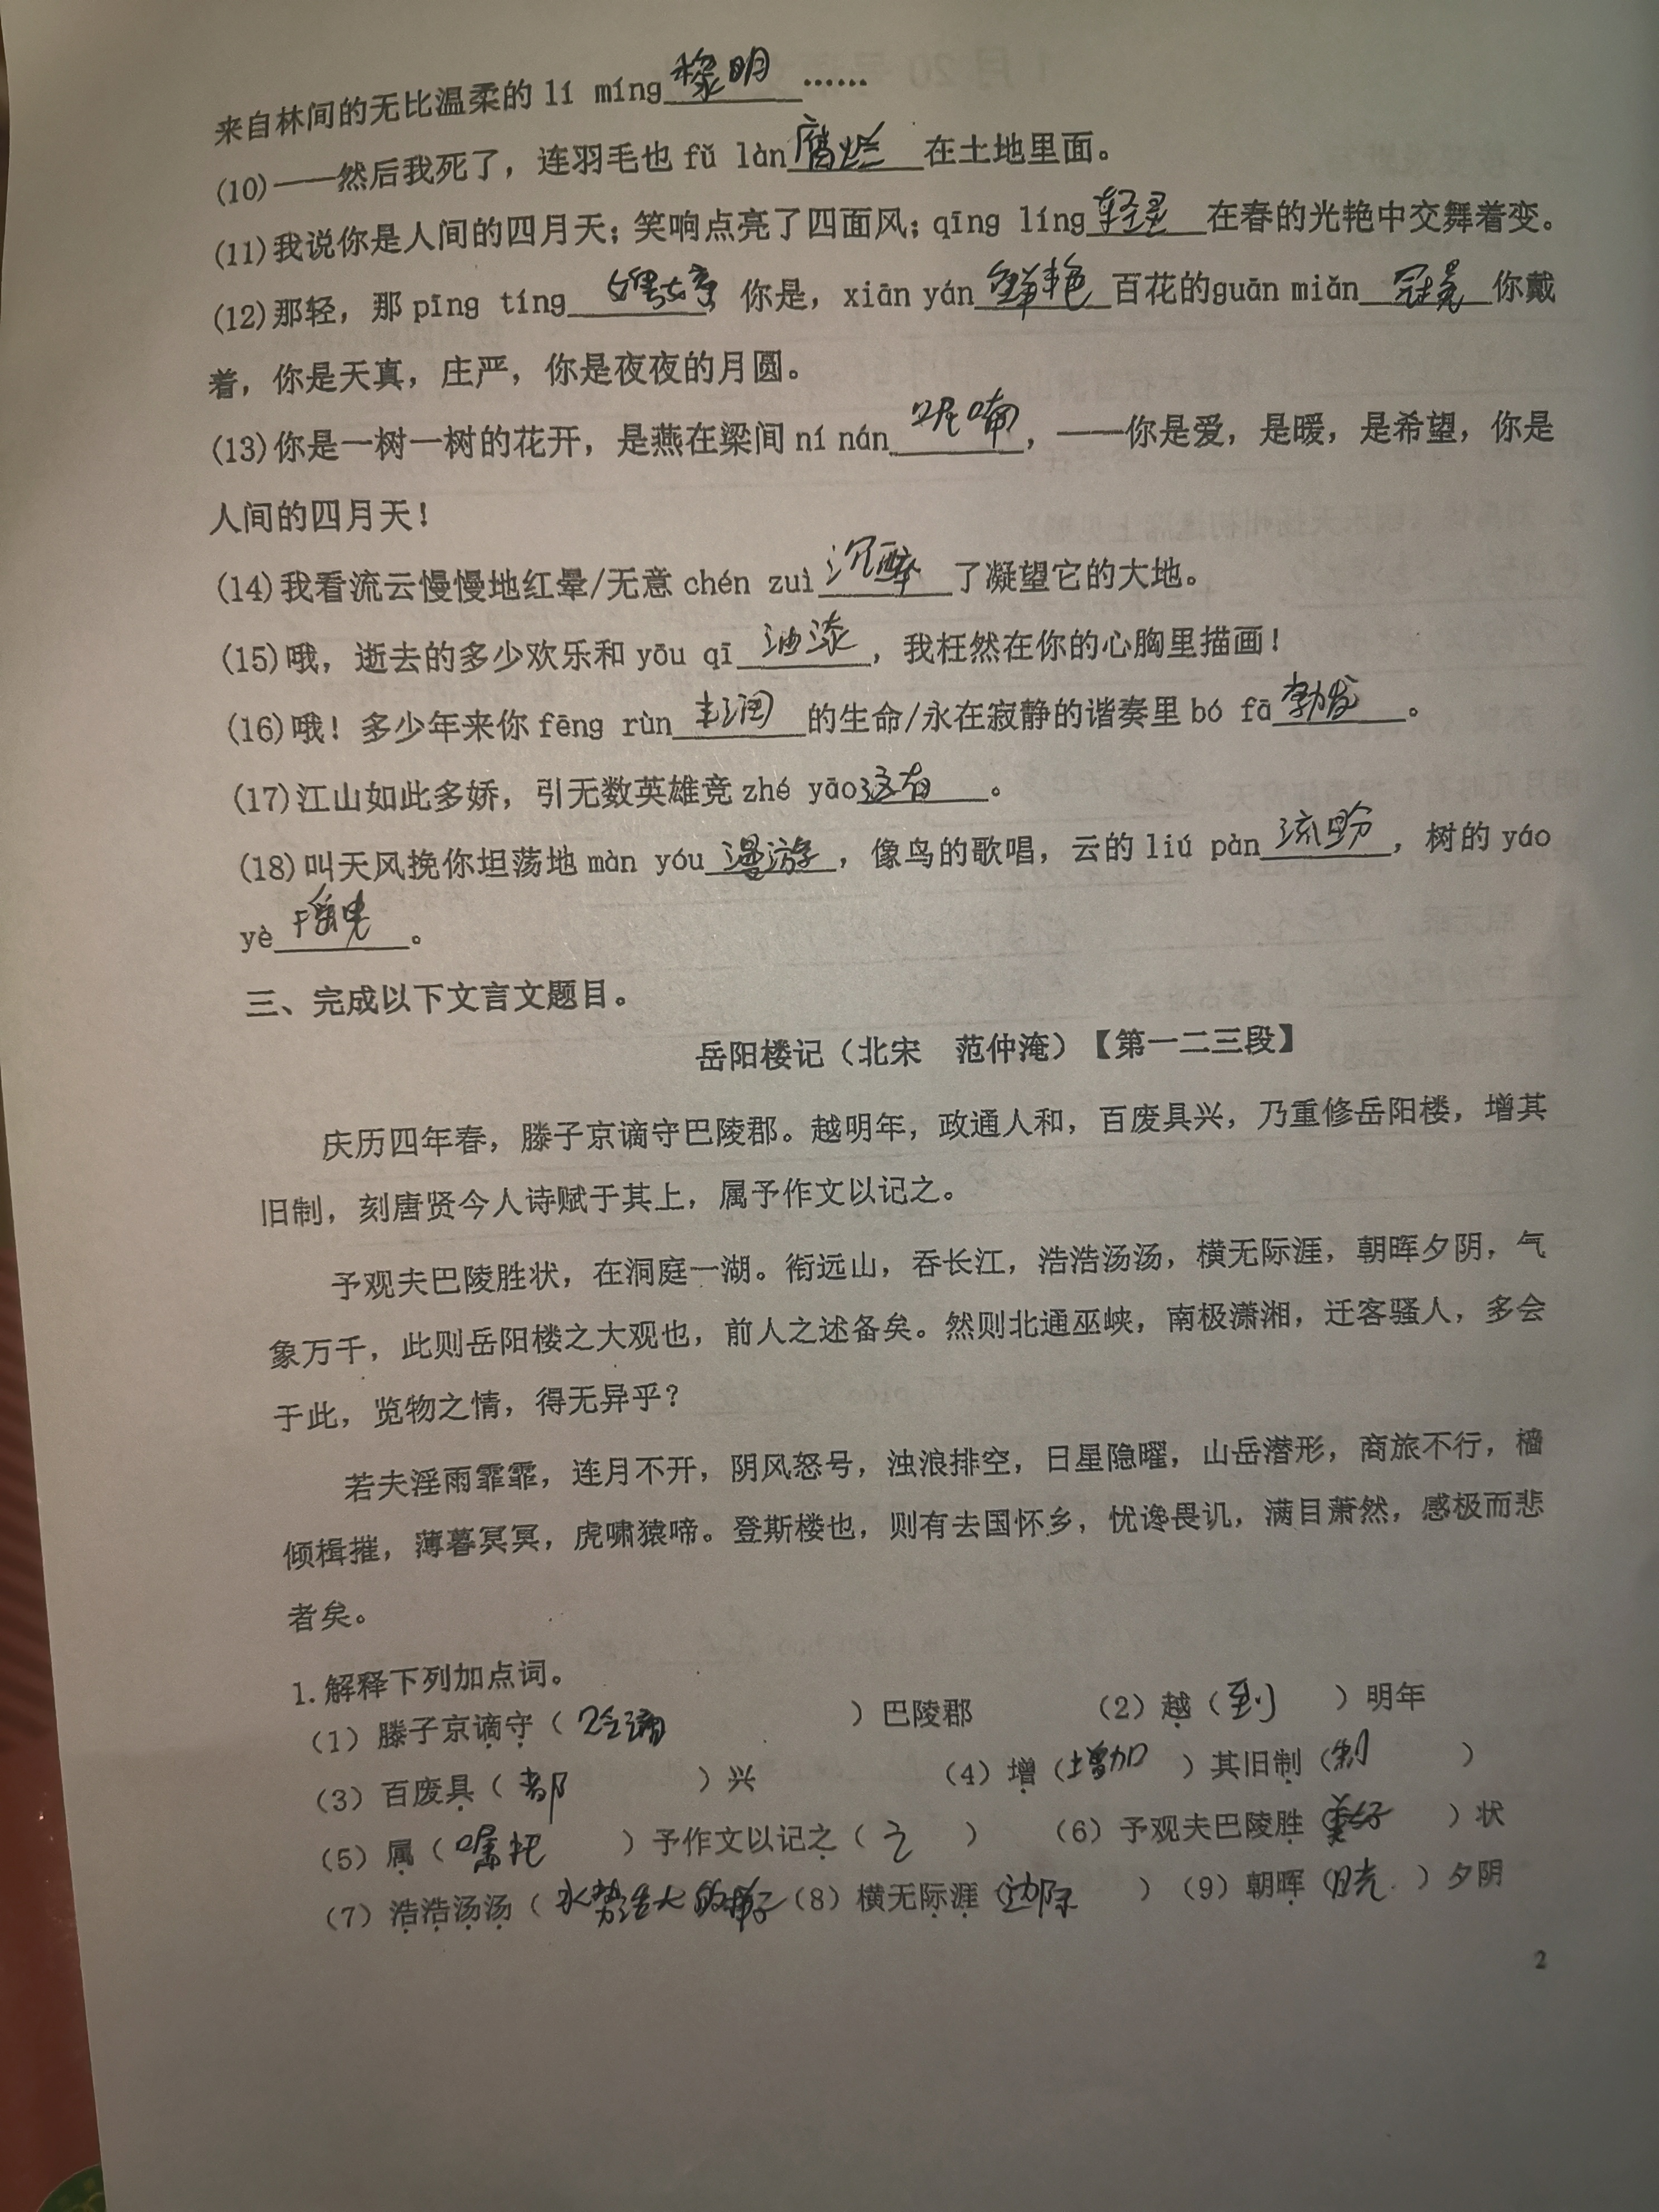 来自林间的无比温柔的 lí míng 黎明 ……
(10)——然后我死了，连羽毛也 fǔ làn 腐烂 在土地里面。
(11)我说你是人间的四月天；笑响点亮了四面风；qīng líng 轻灵 在春的光艳中交舞着变。
(12)那轻，那 pīng tíng 娉婷 你是，xiān yán 鲜艳 百花的guān miǎn 冠冕 你戴
着，你是天真，庄严，你是夜夜的月圆。
(13)你是一树一树的花开，是燕在梁间 ní nán 呢喃，——你是爱，是暖，是希望，你是
人间的四月天！
(14)我看流云慢慢地红晕/无意 chén zuì 沉醉 了凝望它的大地。
(15)哦，逝去的多少欢乐和 yōu qī 油漆，我枉然在你的心胸里描画！
(16)哦！多少年来你 fēng rùn 丰润 的生命/永在寂静的谐奏里 bó fā 勃发。
(17)江山如此多娇，引无数英雄竞 zhé yāo 。
(18)叫天风挽你坦荡地 màn yóu 漫游，像鸟的歌唱，云的 liú pàn 流盼，树的 yáo
yè 摇曳。
三、完成以下文言文题目。
岳阳楼记（北宋 范仲淹）【第一二三段】
庆历四年春，滕子京谪守巴陵郡。越明年，政通人和，百废具兴，乃重修岳阳楼，增其
旧制，刻唐贤今人诗赋于其上，属予作文以记之。
予观夫巴陵胜状，在洞庭一湖。衔远山，吞长江，浩浩汤汤，横无际涯，朝晖夕阴，气
象万千，此则岳阳楼之大观也，前人之述备矣。然则北通巫峡，南极潇湘，迁客骚人，多会
于此，览物之情，得无异乎？
若夫淫雨霏霏，连月不开，阴风怒号，浊浪排空，日星隐曜，山岳潜形，商旅不行，樯
倾楫摧，薄暮冥冥，虎啸猿啼。登斯楼也，则有去国怀乡，忧谗畏讥，满目萧然，感极而悲
者矣。
1.解释下列加点词。
（1）滕子京谪守（ ）巴陵郡 （2）越（到 ）明年
（3）百废具（都 ）兴 （4）增（增加 ）其旧制（制 ）
（5）属（嘱托 ）予作文以记之（之 ） （6）予观夫巴陵胜（美好 ）状
（7）浩浩汤汤（水势浩大的样子 （8）横无际涯（边际 ）（9）朝晖（日光 ）夕阴
2